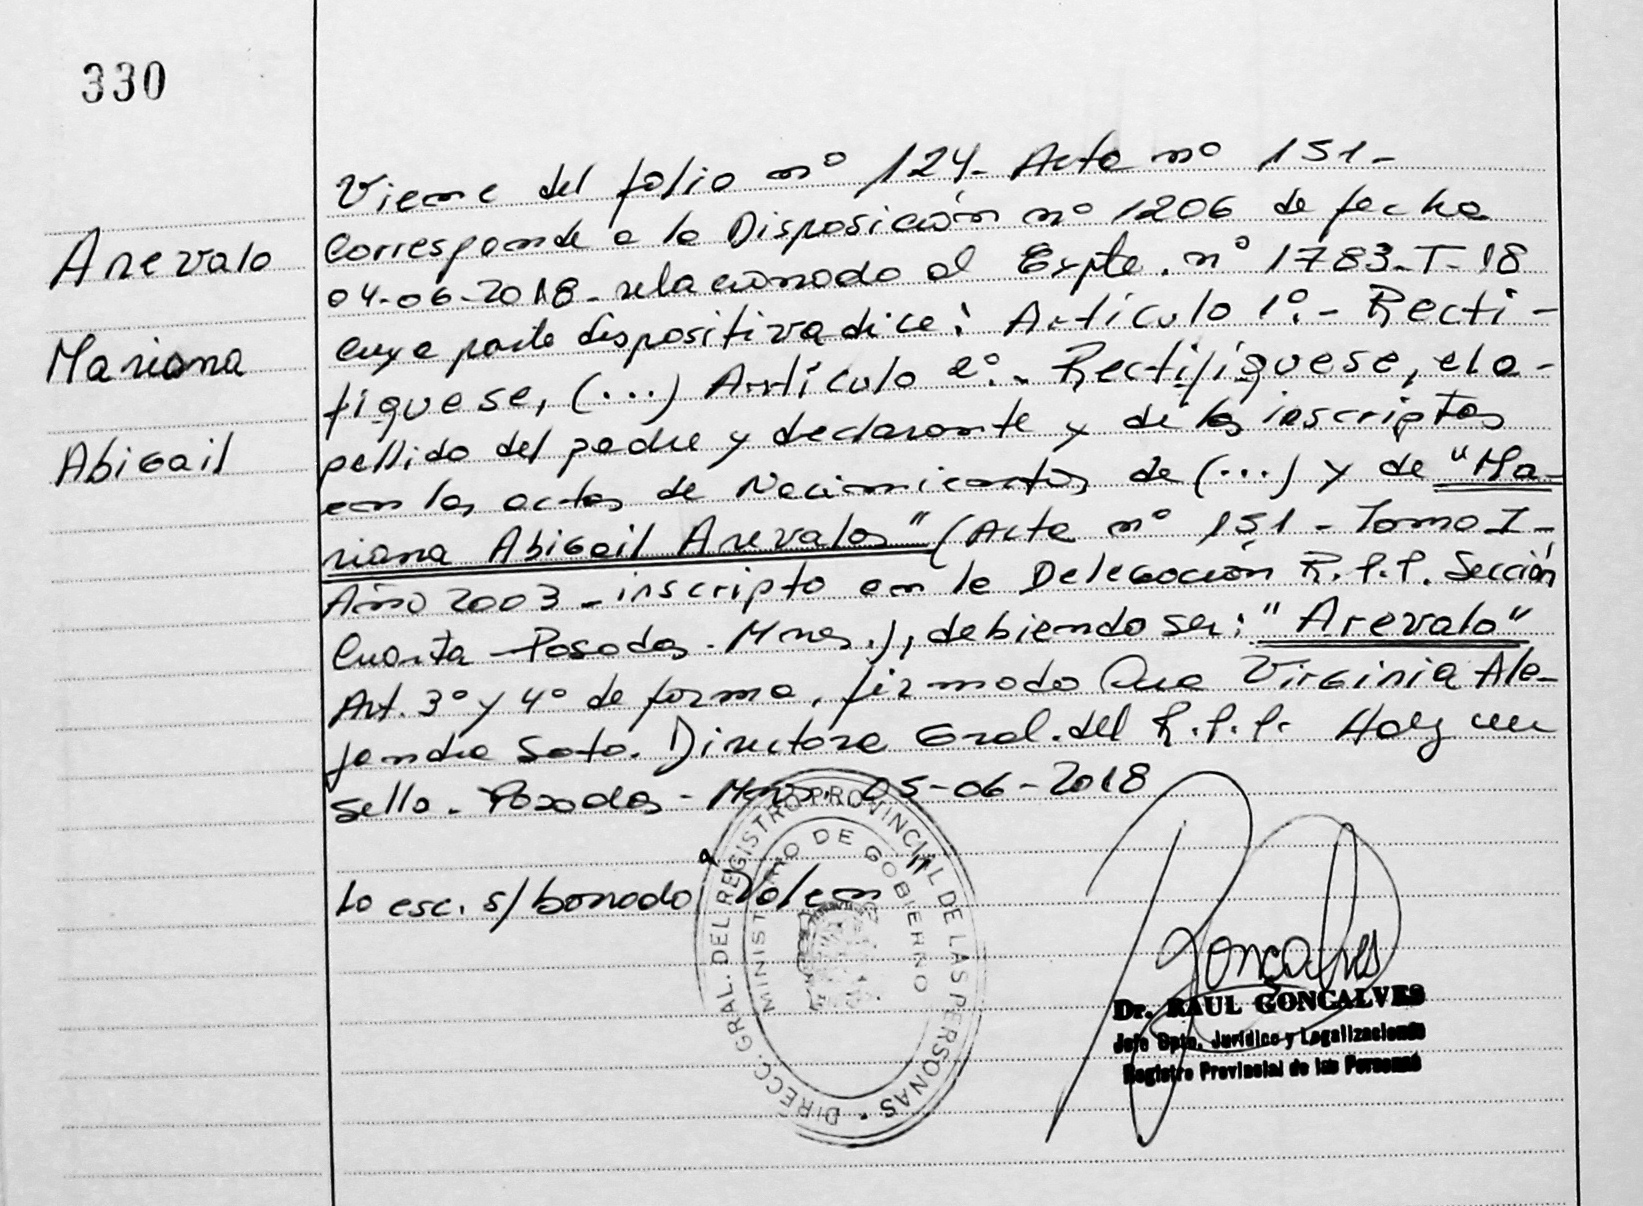 330
Arevalo
Mariana
Abigail
Viene del folio nº 124- Acta nº 151-
Corresponde a la Disposición nº 1206 de fecha
04-06-2018- relacionado al Expte. nº 1783-T-18
cuya parte dispositiva dice: Artículo 1º.- Recti-
fíquese, (...) Artículo 2º.- Rectifíquese, el a-
pellido del padre y declarante y de los inscriptos
en las actas de Nacimientos de (...) y de "Ma-
riana Abigail Arevalos" (Acta nº 151 - Tomo I-
Año 2003 - inscripto en la Delegación R.P.P. Sección
Cuarta - Posadas - Mnes.), debiendo ser: "Arevalo"
Art. 3º y 4º de forma, firmado Ana Virginia Ale-
jandra Soto. Directora Gral. del R.P.P. Hay un
sello. Posadas - Mnes. 05-06-2018
Lo esc. s/ borrado "Valen"
DIRECC. GRAL. DEL REGISTRO PROVINCIAL DE LAS PERSONAS
MINISTERIO DE GOBIERNO
Gonçalves
Dr. RAUL GONCALVES
Jefe Dpto. Jurídico y Legalizaciones
Registro Provincial de las Personas